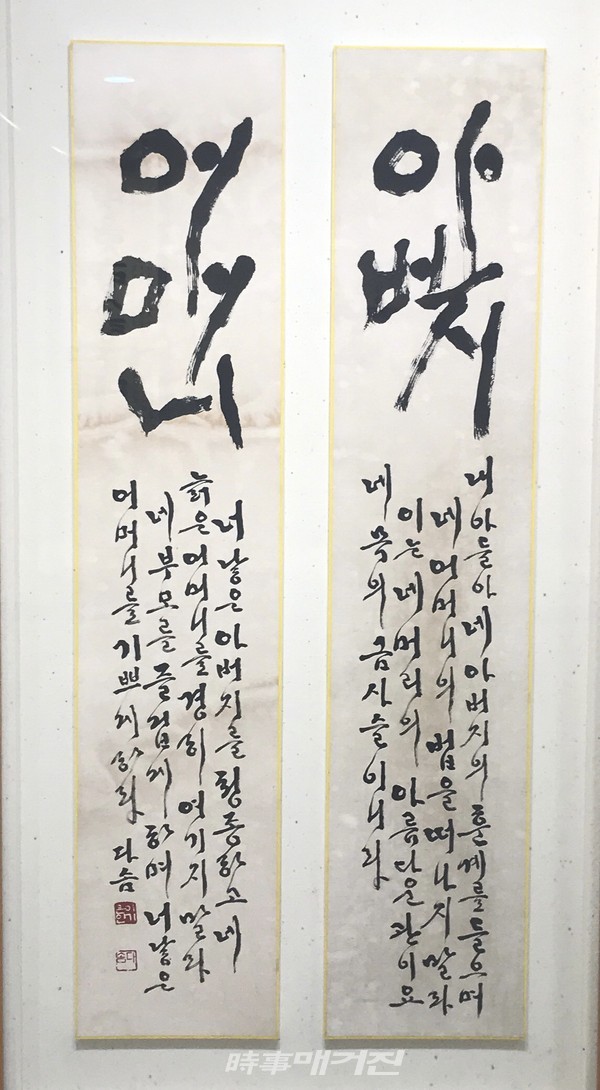 아
버지
내 아들아 네 아버지의 훈계를 들으며
네 어머니의 법을 떠나지 말라
이는 네 머리의 아름다운 관이요
네 목의 금사슬이니라
어
머
니
너 낳은 아버지를 청종하고 네
늙은 어머니를 경히 여기지 말라
네 부모를 즐겁게 하며 너 낳은
어머니를 기쁘게 하라 다슴
時事매거진